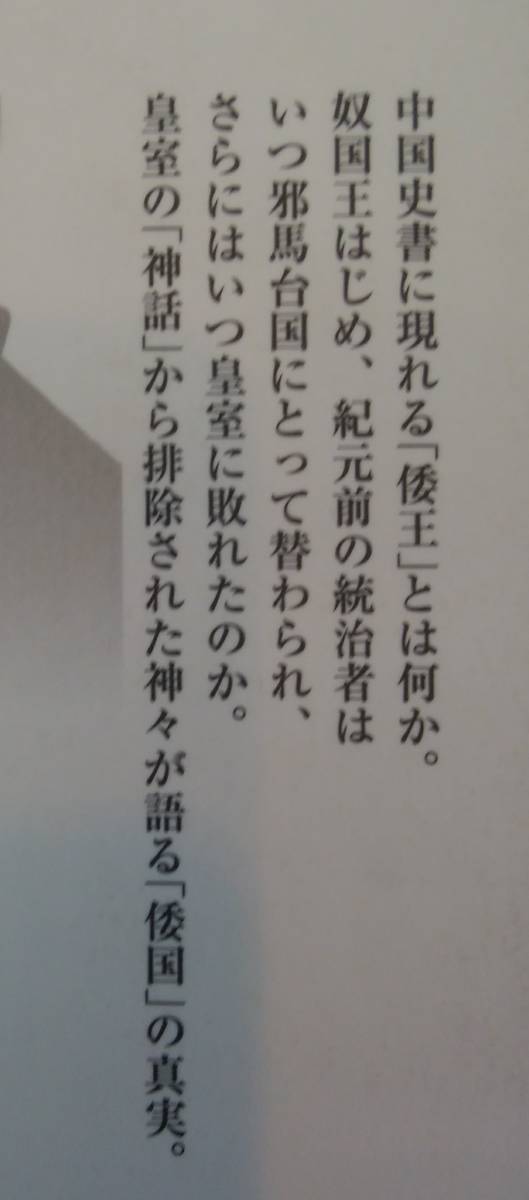 中国史書に現れる「倭王」とは何か。
奴国王はじめ、紀元前の統治者は
いつ邪馬台国にとって替わられ、
さらにはいつ皇室に敗れたのか。
皇室の「神話」から排除された神々が語る「倭国」の真実。